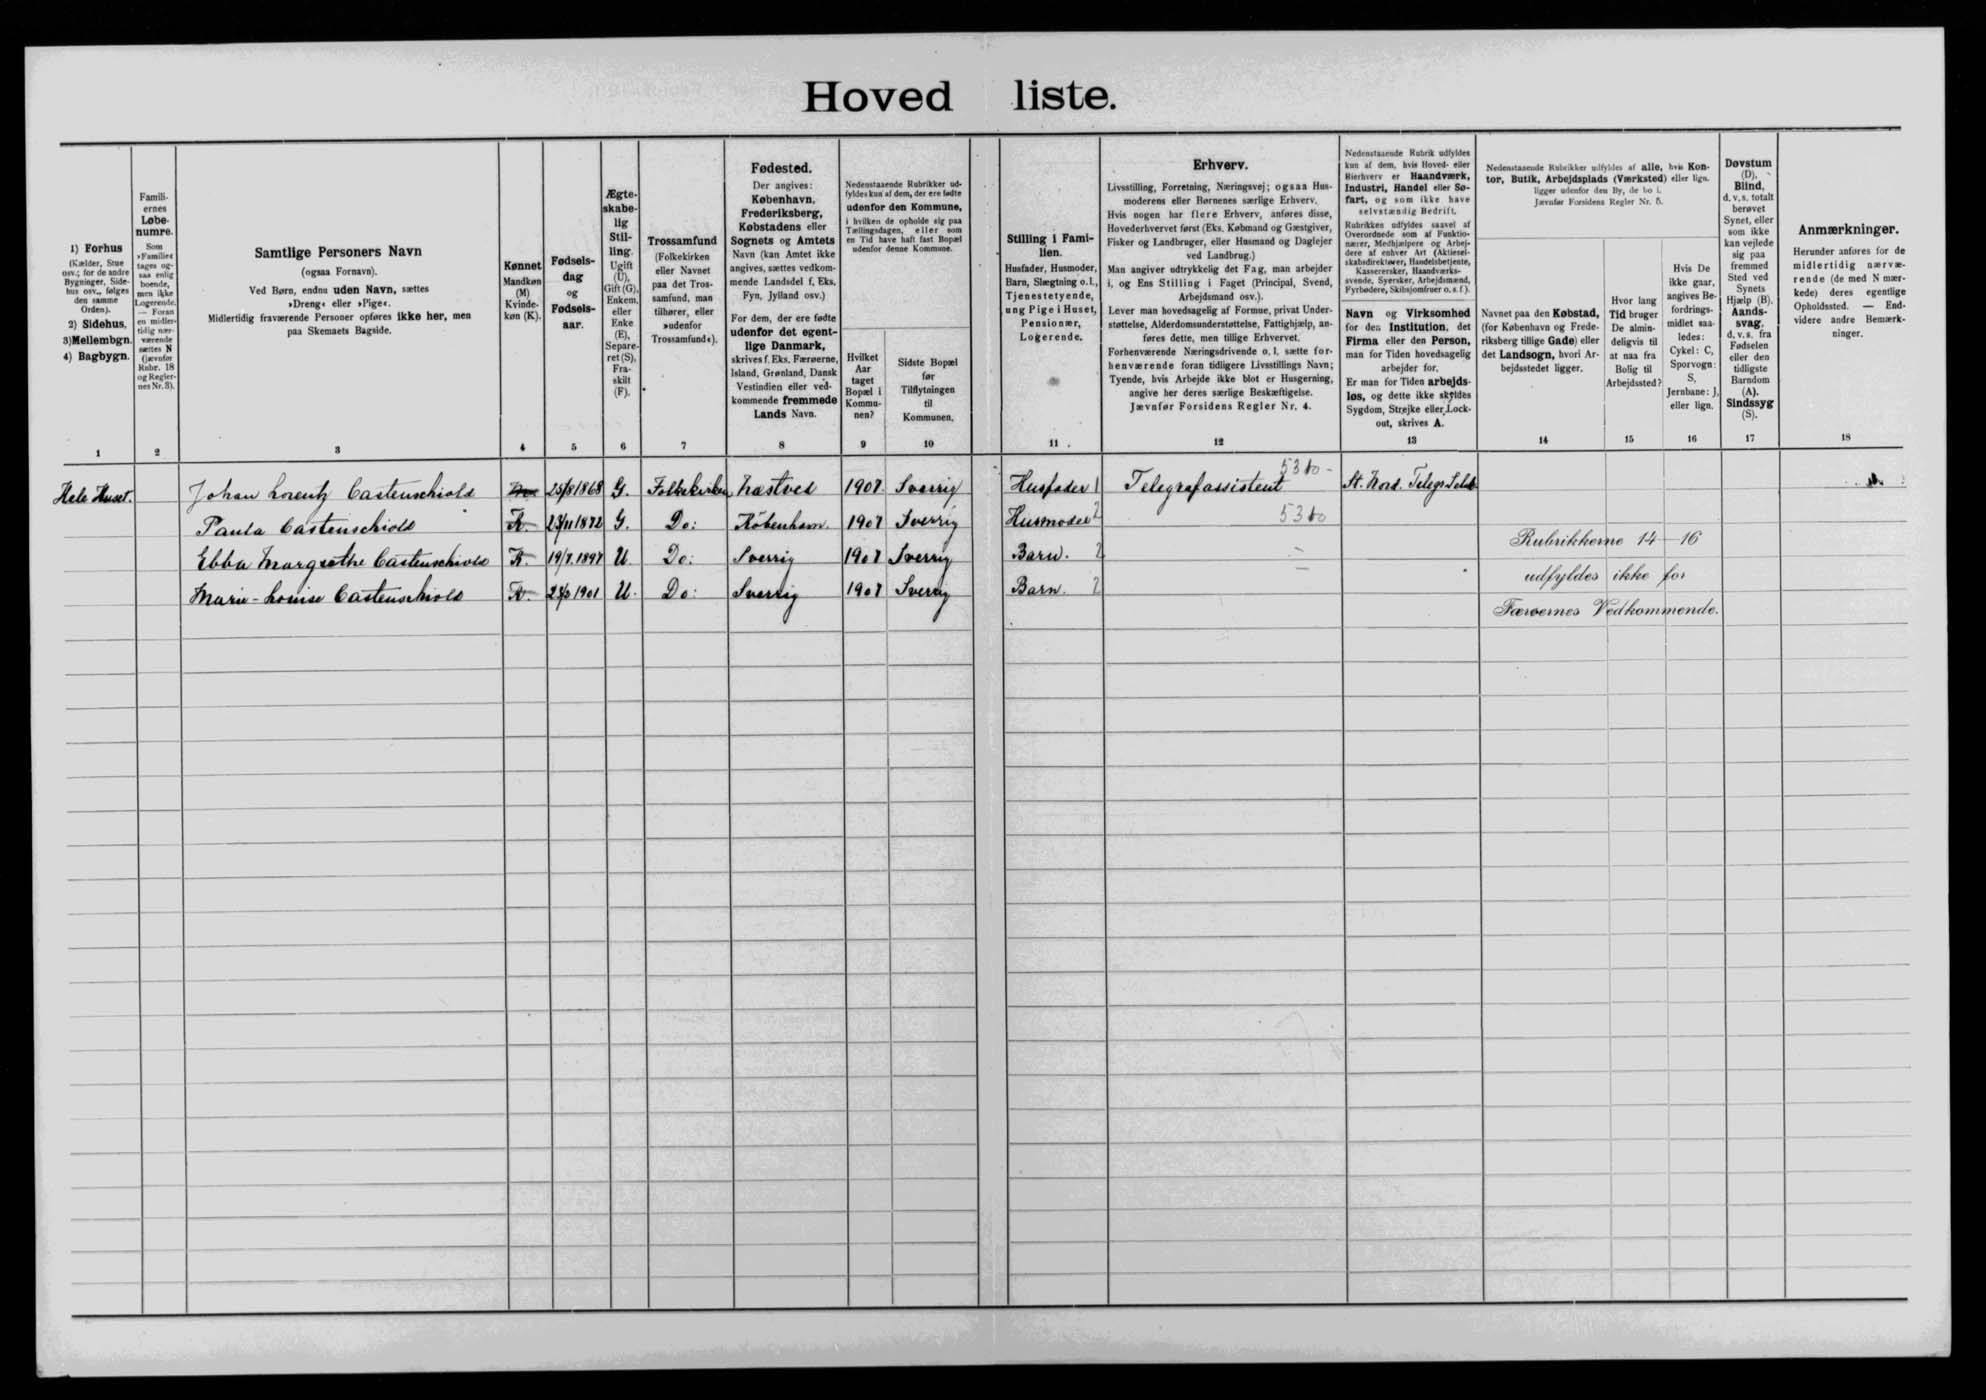 Hoved liste.
1) Forhus
(Kælder, Stue
osv.; for de andre
Bygninger, Side-
hus osv., følges
den samme
Orden).
2) Sidehus,
3) Mellembgn.
4) Bagbygn.
1
Famili-
ernes
Løbe-
numre.
Som
»Familie«
tages og-
saa enlig
boende,
men ikke
Logerende.
— Foran
en midler-
tidig nær-
værende
sættes N
(jævnfør
Rubr. 18
og Regler-
nes Nr. 3).
2
Samtlige Personers Navn
(ogsaa Fornavn).
Ved Børn, endnu uden Navn, sættes
»Dreng« eller »Pige«.
Midlertidig fraværende Personer opføres ikke her, men
paa Skemaets Bagside.
3
Kønnet
Mandkøn
(M)
Kvinde-
køn (K).
4
Fødsels-
dag
og
Fødsels-
aar.
5
Ægte-
skabe-
lig
Stil-
ling.
Ugift
(U),
Gift (G),
Enkem.
eller
Enke
(E),
Separe-
ret (S),
Fra-
skilt
(F).
6
Trossamfund
(Folkekirken
eller Navnet
paa det Tros-
samfund, man
tilhører, eller
»udenfor
Trossamfund«).
7
Fødested.
Der angives:
København,
Frederiksberg,
Købstadens eller
Sognets og Amtets
Navn (kan Amtet ikke
angives, sættes vedkom-
mende Landsdel f. Eks.
Fyn, Jylland osv.)
For dem, der ere fødte
udenfor det egent-
lige Danmark,
skrives f. Eks. Færøerne,
Island, Grønland, Dansk
Vestindien eller ved-
kommende fremmede
Lands Navn.
8
Nedenstaaende Rubrikker ud-
fyldes kun af dem, der ere fødte
udenfor den Kommune,
i hvilken de opholde sig paa
Tællingsdagen, eller som
en Tid have haft fast Bopæl
udenfor denne Kommune.
Hvilket
Aar
taget
Bopæl i
Kommu-
nen?
9
Sidste Bopæl
før
Tilflytningen
til
Kommunen.
10
Stilling i Fami-
lien.
Husfader, Husmoder,
Barn, Slægtning o. l.,
Tjenestetyende,
ung Pige i Huset,
Pensionær,
Logerende.
11
Erhverv.
Livsstilling, Forretning, Næringsvej; ogsaa Hus-
moderens eller Børnenes særlige Erhverv.
Hvis nogen har flere Erhverv, anføres disse,
Hovederhvervet først (Eks. Købmand og Gæstgiver,
Fisker og Landbruger, eller Husmand og Daglejer
ved Landbrug.)
Man angiver udtrykkelig det Fag, man arbejder
i, og Ens Stilling i Faget (Principal, Svend,
Arbejdsmand osv.).
Lever man hovedsagelig af Formue, privat Under-
støttelse, Alderdomsunderstøttelse, Fattighjælp, an-
føres dette, men tillige Erhvervet.
Forhenværende Næringsdrivende o. l. sætte for-
henværende foran tidligere Livsstillings Navn;
Tyende, hvis Arbejde ikke blot er Husgerning,
angive her deres særlige Beskæftigelse.
Jævnfør Forsidens Regler Nr. 4.
12
Nedenstaaende Rubrik udfyldes
kun af dem, hvis Hoved- eller
Bierhverv er Haandværk,
Industri, Handel eller Sø-
fart, og som ikke have
selvstændig Bedrift.
Rubrikken udfyldes saavel af
Overordnede som af Funktio-
nærer, Medhjælpere og Arbej-
dere af enhver Art (Aktiesel-
skabsdirektører, Handelsbetjente,
Kasserersker, Haandværks-
svende, Syersker, Arbejdsmænd,
Fyrbødere, Skibsjomfruer o. s. f.).
Navn og Virksomhed
for den Institution, det
Firma eller den Person,
man for Tiden hovedsagelig
arbejder for.
Er man for Tiden arbejds-
løs, og dette ikke skyldes
Sygdom, Strejke eller Lock-
out, skrives A.
13
Nedenstaaende Rubrikker udfyldes af alle, hvis Kon-
tor, Butik, Arbejdsplads (Værksted) eller lign.
ligger udenfor den By, de bo i.
Jævnfør Forsidens Regler Nr. 5.
Navnet paa den Købstad,
(for København og Frede-
riksberg tillige Gade) eller
det Landsogn, hvori Ar-
bejdsstedet ligger.
14
Hvor lang
Tid bruger
De almin-
deligvis til
at naa fra
Bolig til
Arbejdssted?
15
Hvis De
ikke gaar,
angives Be-
fordrings-
midlet saa-
ledes:
Cykel: C,
Sporvogn:
S,
Jernbane: J,
eller lign.
16
Døvstum
(D).
Blind,
d. v. s. totalt
berøvet
Synet, eller
som ikke
kan vejlede
sig paa
fremmed
Sted ved
Synets
Hjælp (B).
Aands-
svag,
d. v. s. fra
Fødselen
eller den
tidligste
Barndom
(A).
Sindssyg
(S).
17
Anmærkninger.
Herunder anføres for de
midlertidig nærvæ-
rende (de med N mær-
kede) deres egentlige
Opholdssted. — End-
videre andre Bemærk-
ninger.
18
5310 -
Hele Huset. Johan Lorentz Castenschiold 25/8 1868 G. Folkekirken Næstved 1907. Sverrig Husfader 1 Telegrafassistent St. Nord. Telegr. Selsk
Paula Castenschiold K. 1872 G. Do: København. 1907 Sverrig Husmoder 2 5310
Ebba Margrethe Castenschiold K. 19/7. 1897 U. Do: Sverrig 1907 Sverrig Barn. 2 Rubrikkerne 14—16
udfyldes ikke for
Marie-Louise Castenschiold K. 1901 U. Do: Sverrig 1907 Sverrig Barn. 2 Færøernes Vedkommende.